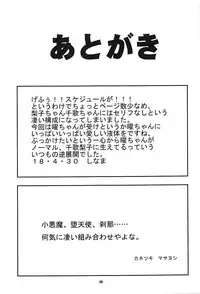 あとがき
げふぅ!!スケジュールが!!!
というわけでちょっとページ数少なめ、
梨子ちゃん千歌ちゃんにはセリフなしという
凄い構成になってしまいました。
今回は曜ちゃんが受けというか曜ちゃんに
いっぱいエロい愛しい液体をですね、
ぶっかけたいという一心から曜ちゃんが
ノーマル、千歌梨子に生えてるっていう
いつもの逆展開でした。
18・4・30 しなま
小悪魔、堕天使、刹那……
何気に凄い組み合わせやよな。
カネツキ マサヨシ